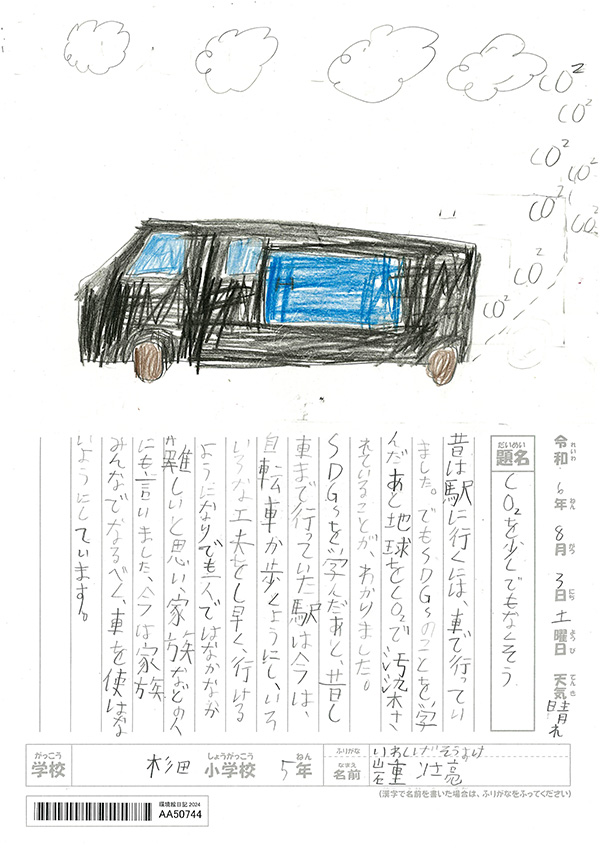 CO²
CO²
CO²
CO²
CO²
CO²
CO²
CO²
令和 6年 8月 3日 土曜日 天気 晴れ
れいわ ねん がつ にち ようび てんき
だいめい
題名
CO₂を少しでもなくそう
昔は駅に行くには、車で行ってい
ました。でもSDGsのことを学
んだあと地球をCO₂で汚染さ
れていることが、わかりました。
SDGsを学んだあと、昔し
車まで行っていた駅は今は、
自転車か歩くようにし、いろ
いろな工夫をし早く、行ける
ようになりでも一人ではなかなか
難しいと思い、家族などの人
にも、言いました、今は家族
みんなでなるべく、車を使はな
いようにしています。
がっこう
学校
杉田
しょうがっこう
小学校
5
ねん
年
ふりがな
なまえ
名前
(漢字で名前を書いた場合は、ふりがなをふってください)
環境絵日記 2024
AA50744